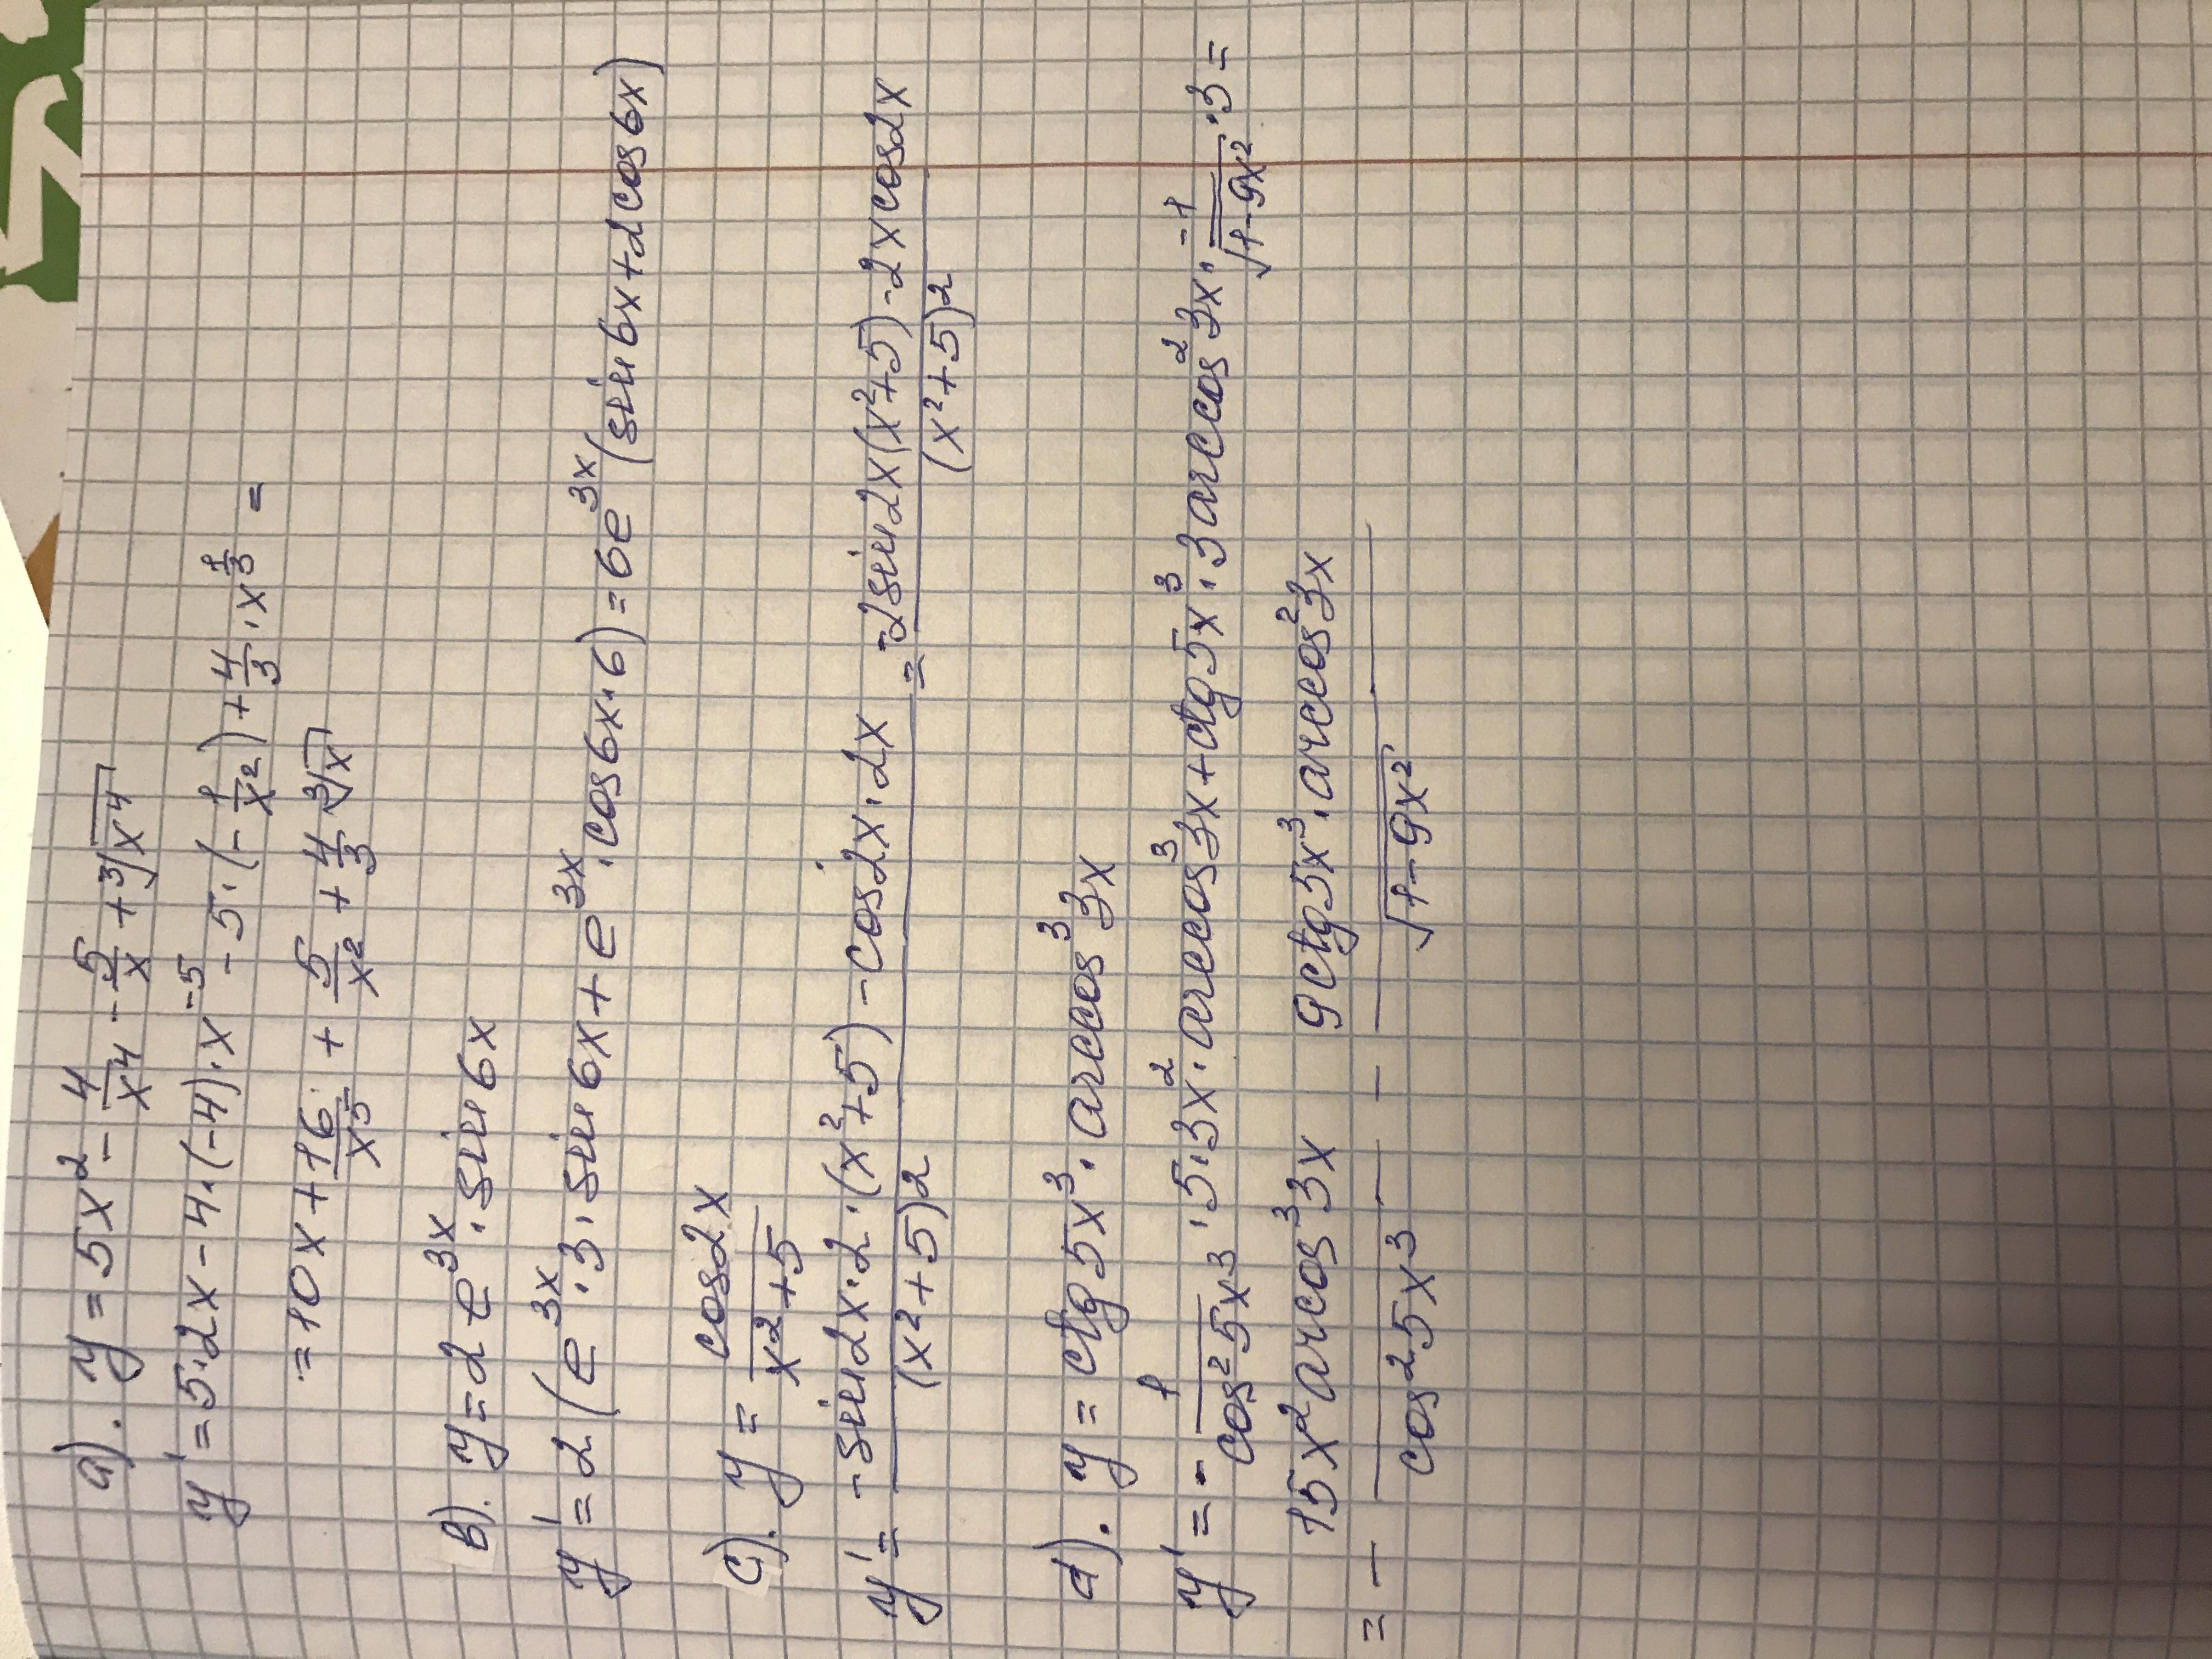 a). y = 5x² - 4/x⁴ - 5/x + ³√x⁴
y' = 5·2x - 4·(-4)·x⁻⁵ - 5·(-1/x²) + 4/3·x^(1/3) =
= 10x + 16/x⁵ + 5/x² + 4/3 ³√x
B). y = 2e^(3x)·sin6x
y' = 2(e^(3x)·3·sin6x + e^(3x)·cos6x·6) = 6e^(3x)(sin6x + 2cos6x)
c). y = cos2x/(x²+5)
y' = (-sin2x·2·(x²+5) - cos2x·2x)/(x²+5)² = (-2sin2x(x²+5) - 2xcos2x)/(x²+5)²
d). y = ctg5x³·arccos³3x
y' = - 1/cos²5x³·5·3x²·arccos³3x + ctg5x³·3arccos²3x·(-1)/√(1-9x²)·3 =
= - 15x²arcos³3x/cos²5x³ - 9ctg5x³·arccos²3x/√(1-9x²)